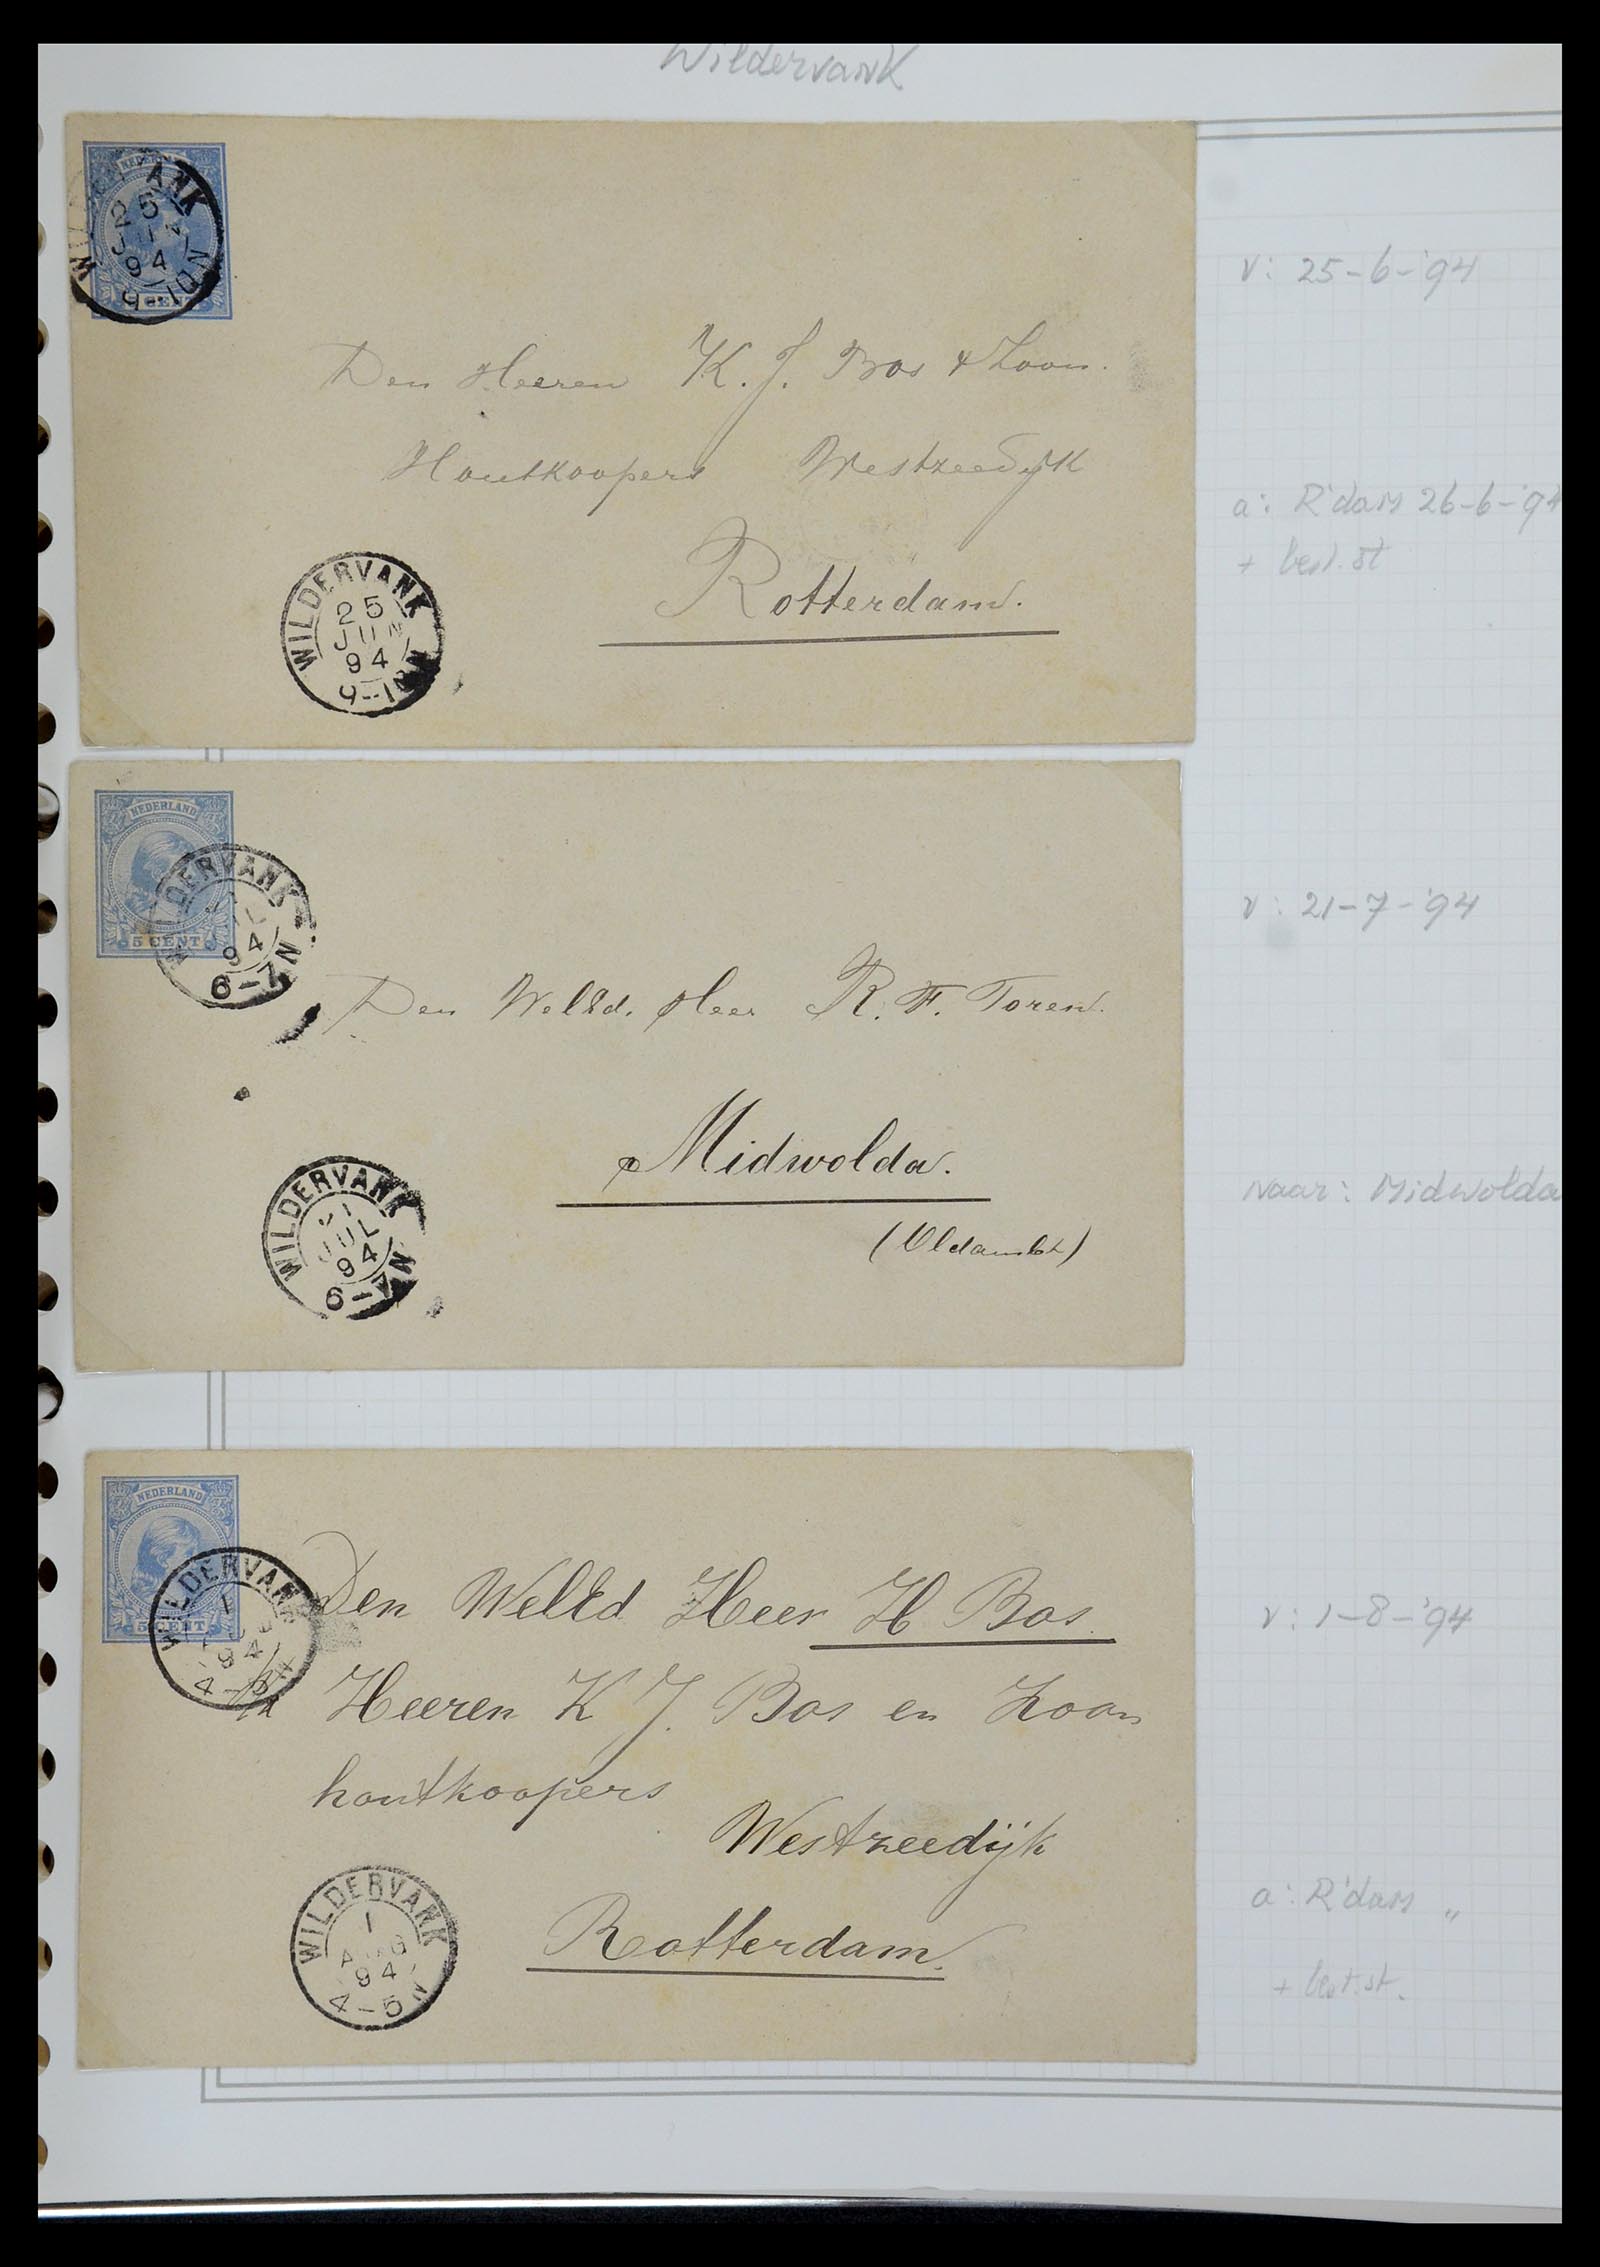 Wildervank
NEDERLAND
WILDERVANK
25
JUN
94
9-10N
CENT
Den Heeren K. J. Bos & Zoon.
Houtkoopers Westzeedijk
Rotterdam.
WILDERVANK
25
JUN
94
9-10N
v: 25-6-'94
a: R'dam 26-6-'94
+ best. st
NEDERLAND
5 CENT
WILDERVANK
94
6-7N
Den WelEd. Heer R. F. Toren.
Midwolda.
(Oldambt)
WILDERVANK
21
JUL
94
6-7N
v: 21-7-'94
naar: Midwolda
NEDERLAND
5 CENT
WILDERVANK
1
94
4-5N
Den WelEd Heer H Bos.
Heeren K J. Bos en Zoon
houtkoopers
Westzeedijk
Rotterdam.
WILDERVANK
1
AUG
94
4-5N
v: 1-8-'94
a: R'dam "
+ best. st.